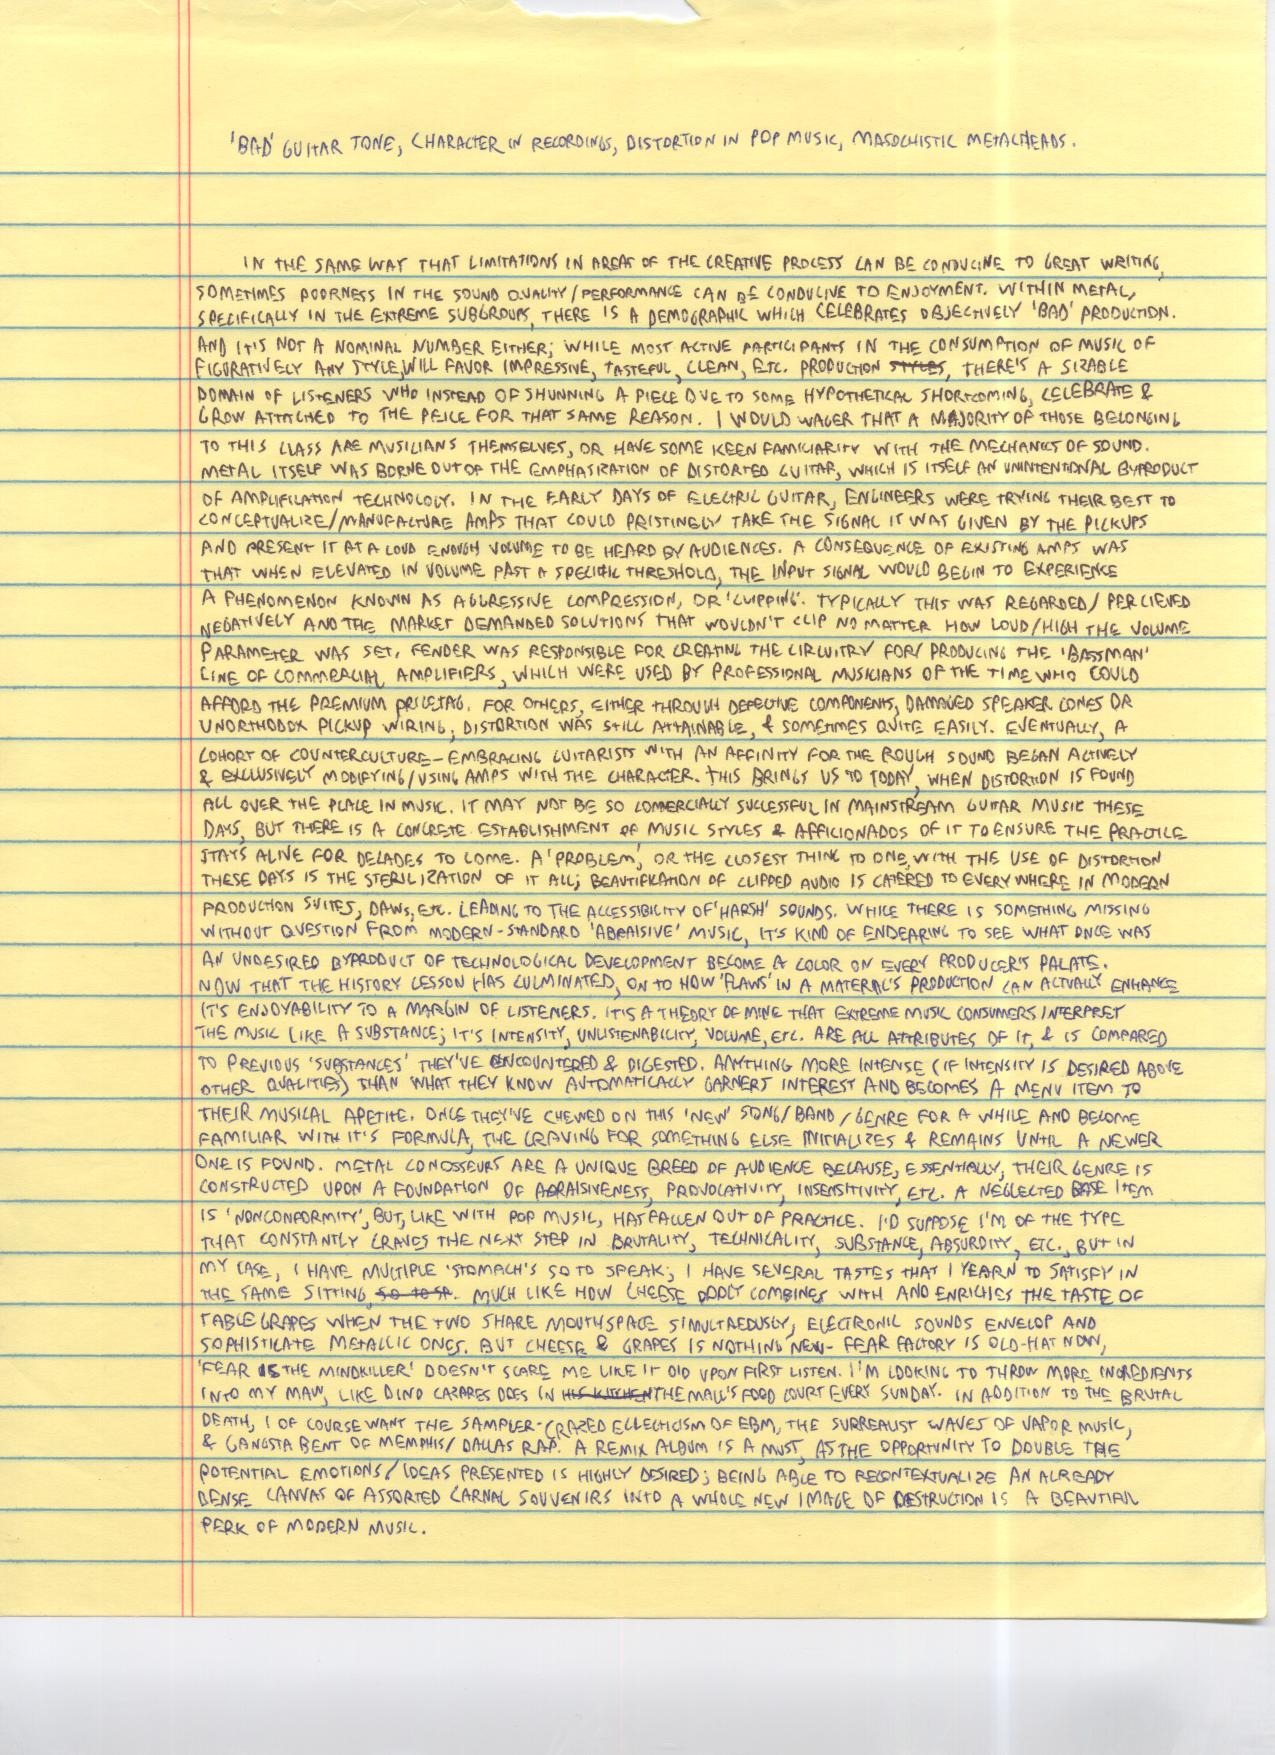 'BAD' GUITAR TONE, CHARACTER IN RECORDINGS, DISTORTION IN POP MUSIC, MASOCHISTIC METALHEADS.
IN THE SAME WAY THAT LIMITATIONS IN AREAS OF THE CREATIVE PROCESS CAN BE CONDUCINE TO GREAT WRITING,
SOMETIMES POORNESS IN THE SOUND QUALITY/PERFORMANCE CAN BE CONDUCIVE TO ENJOYMENT. WITHIN METAL,
SPECIFICALLY IN THE EXTREME SUBGROUPS, THERE IS A DEMOGRAPHIC WHICH CELEBRATES OBJECTIVELY 'BAD' PRODUCTION.
AND IT'S NOT A NOMINAL NUMBER EITHER; WHILE MOST ACTIVE PARTICIPANTS IN THE CONSUMPTION OF MUSIC OF
FIGURATIVELY ANY STYLE, WILL FAVOR IMPRESSIVE, TASTEFUL, CLEAN, ETC. PRODUCTION STYLES, THERE'S A SIZABLE
DOMAIN OF LISTENERS WHO INSTEAD OF SHUNNING A PIECE DUE TO SOME HYPOTHETICAL SHORTCOMING, CELEBRATE &
GROW ATTACHED TO THE PEICE FOR THAT SAME REASON. I WOULD WAGER THAT A MAJORITY OF THOSE BELONGING
TO THIS CLASS ARE MUSICIANS THEMSELVES, OR HAVE SOME KEEN FAMILIARITY WITH THE MECHANICS OF SOUND.
METAL ITSELF WAS BORNE OUT OF THE EMPHASIZATION OF DISTORTED GUITAR, WHICH IS ITSELF AN UNINTENTIONAL BYPRODUCT
OF AMPLIFICATION TECHNOLOGY. IN THE EARLY DAYS OF ELECTRIC GUITAR, ENGINEERS WERE TRYING THEIR BEST TO
CONCEPTUALIZE/MANUFACTURE AMPS THAT COULD PRISTINGELY TAKE THE SIGNAL IT WAS GIVEN BY THE PICKUPS
AND PRESENT IT AT A LOUD ENOUGH VOLUME TO BE HEARD BY AUDIENCES. A CONSEQUENCE OF EXISTING AMPS WAS
THAT WHEN ELEVATED IN VOLUME PAST A SPECIFIC THRESHOLD, THE INPUT SIGNAL WOULD BEGIN TO EXPERIENCE
A PHENOMENON KNOWN AS AGGRESSIVE COMPRESSION, OR 'CLIPPING'. TYPICALLY THIS WAS REGARDED/PERCIEVED
NEGATIVELY AND THE MARKET DEMANDED SOLUTIONS THAT WOULDN'T CLIP NO MATTER HOW LOUD/HIGH THE VOLUME
PARAMETER WAS SET. FENDER WAS RESPONSIBLE FOR CREATING THE CIRCUITRY FOR/PRODUCING THE 'BASSMAN'
LINE OF COMMERCIAL AMPLIFIERS, WHICH WERE USED BY PROFESSIONAL MUSICIANS OF THE TIME WHO COULD
AFFORD THE PREMIUM PRICETAG. FOR OTHERS, EITHER THROUGH DEFECTIVE COMPONENTS, DAMAGED SPEAKER CONES OR
UNORTHODOX PICKUP WIRING, DISTORTION WAS STILL ATTAINABLE, & SOMETIMES QUITE EASILY. EVENTUALLY, A
COHORT OF COUNTERCULTURE-EMBRACING GUITARISTS WITH AN AFFINITY FOR THE ROUGH SOUND BEGAN ACTIVELY
& EXCLUSIVELY MODIFYING/USING AMPS WITH THE CHARACTER. THIS BRINGS US TO TODAY, WHEN DISTORTION IS FOUND
ALL OVER THE PLACE IN MUSIC. IT MAY NOT BE SO COMMERCIALLY SUCCESSFUL IN MAINSTREAM GUITAR MUSIC THESE
DAYS, BUT THERE IS A CONCRETE ESTABLISHMENT OF MUSIC STYLES & AFFICIONADOS OF IT TO ENSURE THE PRACTICE
STAYS ALIVE FOR DECADES TO COME. A 'PROBLEM', OR THE CLOSEST THING TO ONE, WITH THE USE OF DISTORTION
THESE DAYS IS THE STERILIZATION OF IT ALL; BEAUTIFICATION OF CLIPPED AUDIO IS CATERED TO EVERYWHERE IN MODERN
PRODUCTION SUITES, DAWS, ETC. LEADING TO THE ACCESSIBILITY OF 'HARSH' SOUNDS. WHILE THERE IS SOMETHING MISSING
WITHOUT QUESTION FROM MODERN-STANDARD 'ABRAISIVE' MUSIC, IT'S KIND OF ENDEARING TO SEE WHAT ONCE WAS
AN UNDESIRED BYPRODUCT OF TECHNOLOGICAL DEVELOPMENT BECOME A COLOR ON EVERY PRODUCER'S PALATE.
NOW THAT THE HISTORY LESSON HAS CULMINATED, ON TO HOW 'FLAWS' IN A MATERAL'S PRODUCTION CAN ACTUALLY ENHANCE
IT'S ENJOYABILITY TO A MARGIN OF LISTENERS. IT IS A THEORY OF MINE THAT EXTREME MUSIC CONSUMERS INTERPRET
THE MUSIC LIKE A SUBSTANCE; IT'S INTENSITY, UNLISTENABILITY, VOLUME, ETC. ARE ALL ATTRIBUTES OF IT, & IS COMPARED
TO PREVIOUS 'SUBSTANCES' THEY'VE ENCOUNTERED & DIGESTED. ANYTHING MORE INTENSE (IF INTENSITY IS DESIRED ABOVE
OTHER QUALITIES) THAN WHAT THEY KNOW AUTOMATICALLY GARNERS INTEREST AND BECOMES A MENU ITEM TO
THEIR MUSICAL APETITE. ONCE THEY'VE CHEWED ON THIS 'NEW' SONG/BAND/GENRE FOR A WHILE AND BECOME
FAMILIAR WITH IT'S FORMULA, THE CRAVING FOR SOMETHING ELSE INITIALIZES & REMAINS UNTIL A NEWER
ONE IS FOUND. METAL CONOSSEURS ARE A UNIQUE BREED OF AUDIENCE BECAUSE, ESSENTIALLY, THEIR GENRE IS
CONSTRUCTED UPON A FOUNDATION OF ABRAISIVENESS, PROVOCATIVITY, INSENSITIVITY, ETC. A NEGLECTED BASE ITEM
IS 'NONCONFORMITY', BUT, LIKE WITH POP MUSIC, HAS FALLEN OUT OF PRACTICE. I'D SUPPOSE I'M OF THE TYPE
THAT CONSTANTLY CRAVES THE NEXT STEP IN BRUTALITY, TECHNICALITY, SUBSTANCE, ABSURDITY, ETC., BUT IN
MY CASE, I HAVE MULTIPLE 'STOMACH'S SO TO SPEAK; I HAVE SEVERAL TASTES THAT I YEARN TO SATISFY IN
THE SAME SITTING, SO TO SP. MUCH LIKE HOW CHEESE ODDLY COMBINES WITH AND ENRICHES THE TASTE OF
TABLE GRAPES WHEN THE TWO SHARE MOUTHSPACE SIMULTAEOUSLY, ELECTRONIC SOUNDS ENVELOP AND
SOPHISTICATE METALLIC ONES. BUT CHEESE & GRAPES IS NOTHING NEW- FEAR FACTORY IS OLD-HAT NOW,
'FEAR IS THE MINDKILLER' DOESN'T SCARE ME LIKE IT DID UPON FIRST LISTEN. I'M LOOKING TO THROW MORE INGREDIENTS
INTO MY MAW, LIKE DINO CAZARES DOES IN HIS KITCHEN THE MALL'S FOOD COURT EVERY SUNDAY. IN ADDITION TO THE BRUTAL
DEATH, I OF COURSE WANT THE SAMPLER-CRAZED ECLECTICISM OF EBM, THE SURREALIST WAVES OF VAPOR MUSIC,
& GANGSTA BENT OF MEMPHIS/DALLAS RAP. A REMIX ALBUM IS A MUST, AS THE OPPORTUNITY TO DOUBLE THE
POTENTIAL EMOTIONS/IDEAS PRESENTED IS HIGHLY DESIRED; BEING ABLE TO RECONTEXTUALIZE AN ALREADY
DENSE CANVAS OF ASSORTED CARNAL SOUVENIRS INTO A WHOLE NEW IMAGE OF DESTRUCTION IS A BEAUTIFUL
PERK OF MODERN MUSIC.